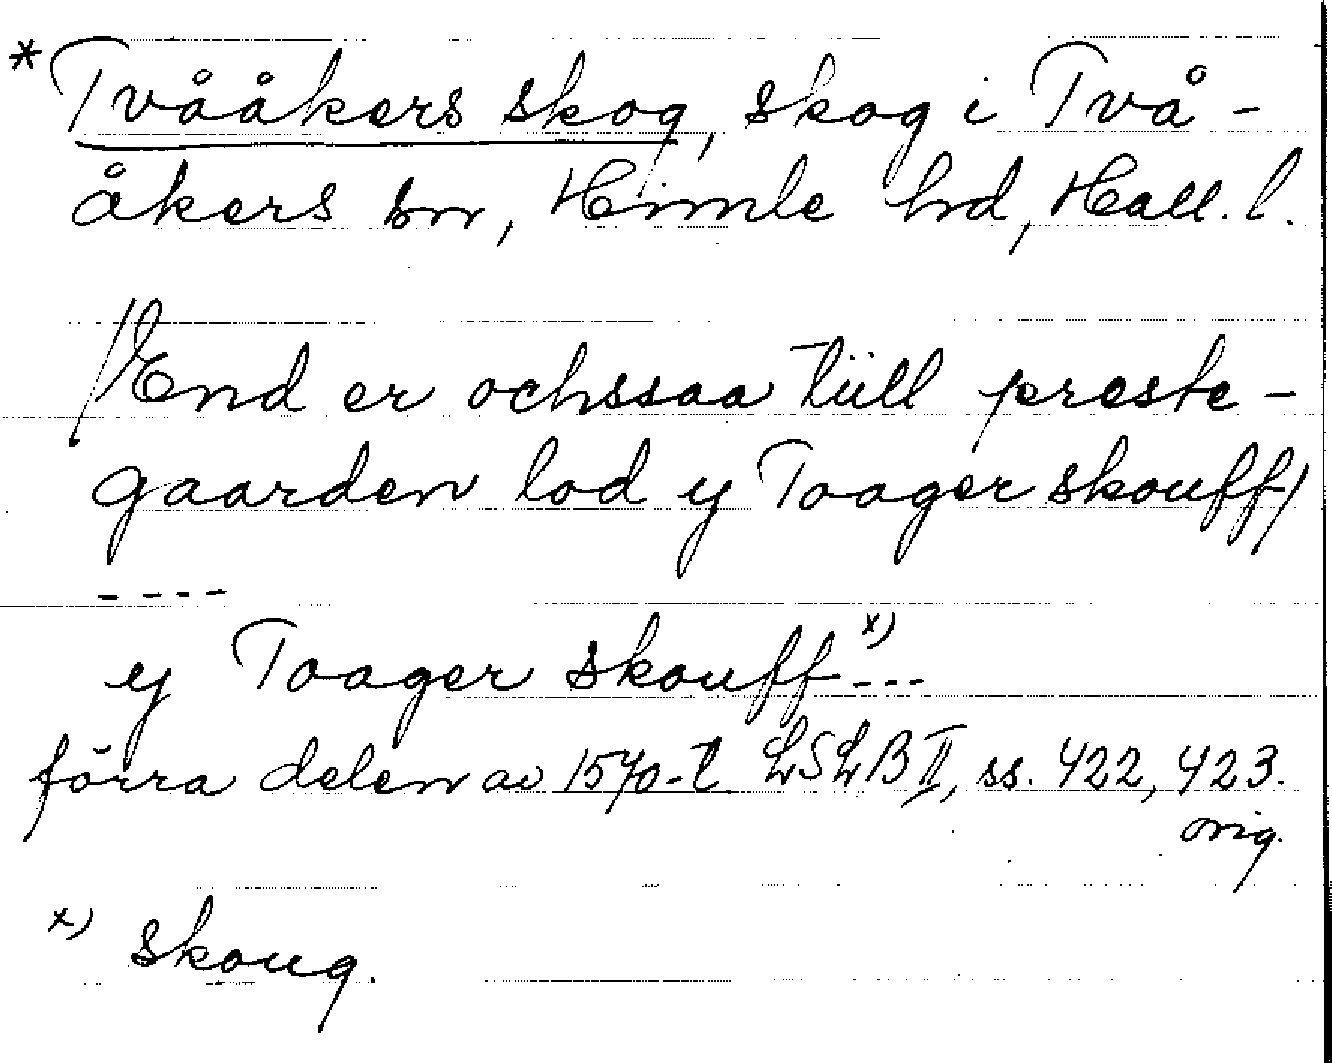 * Tvååkers skog, skog i Två-
åkers sn, Himle hd, Hall. l.
/End er ochssaa tüll preste-
gaarden lod y Toager skouff/
----
y Toager skouff x) ---
förra delen av 1570-t LSLB II, ss. 422, 423.
orig.
x) skoug.